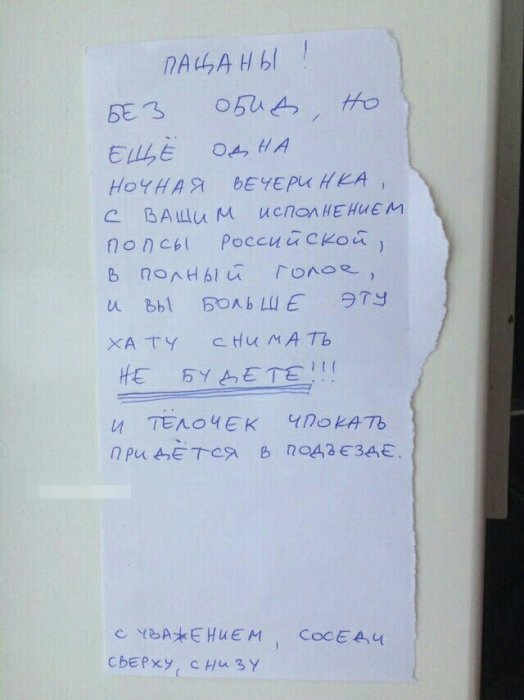 ПАЦАНЫ!
БЕЗ ОБИД, НО
ЕЩЁ ОДНА
НОЧНАЯ ВЕЧЕРИНКА,
С ВАШИМ ИСПОЛНЕНИЕМ
ПОПСЫ РОССИЙСКОЙ,
В ПОЛНЫЙ ГОЛОС,
И ВЫ БОЛЬШЕ ЭТУ
ХАТУ СНИМАТЬ
НЕ БУДЕТЕ!!!
И ТЁЛОЧЕК ЧПОКАТЬ
ПРИДЁТСЯ В ПОДЪЕЗДЕ.
С УВАЖЕНИЕМ, СОСЕДИ
СВЕРХУ, СНИЗУ